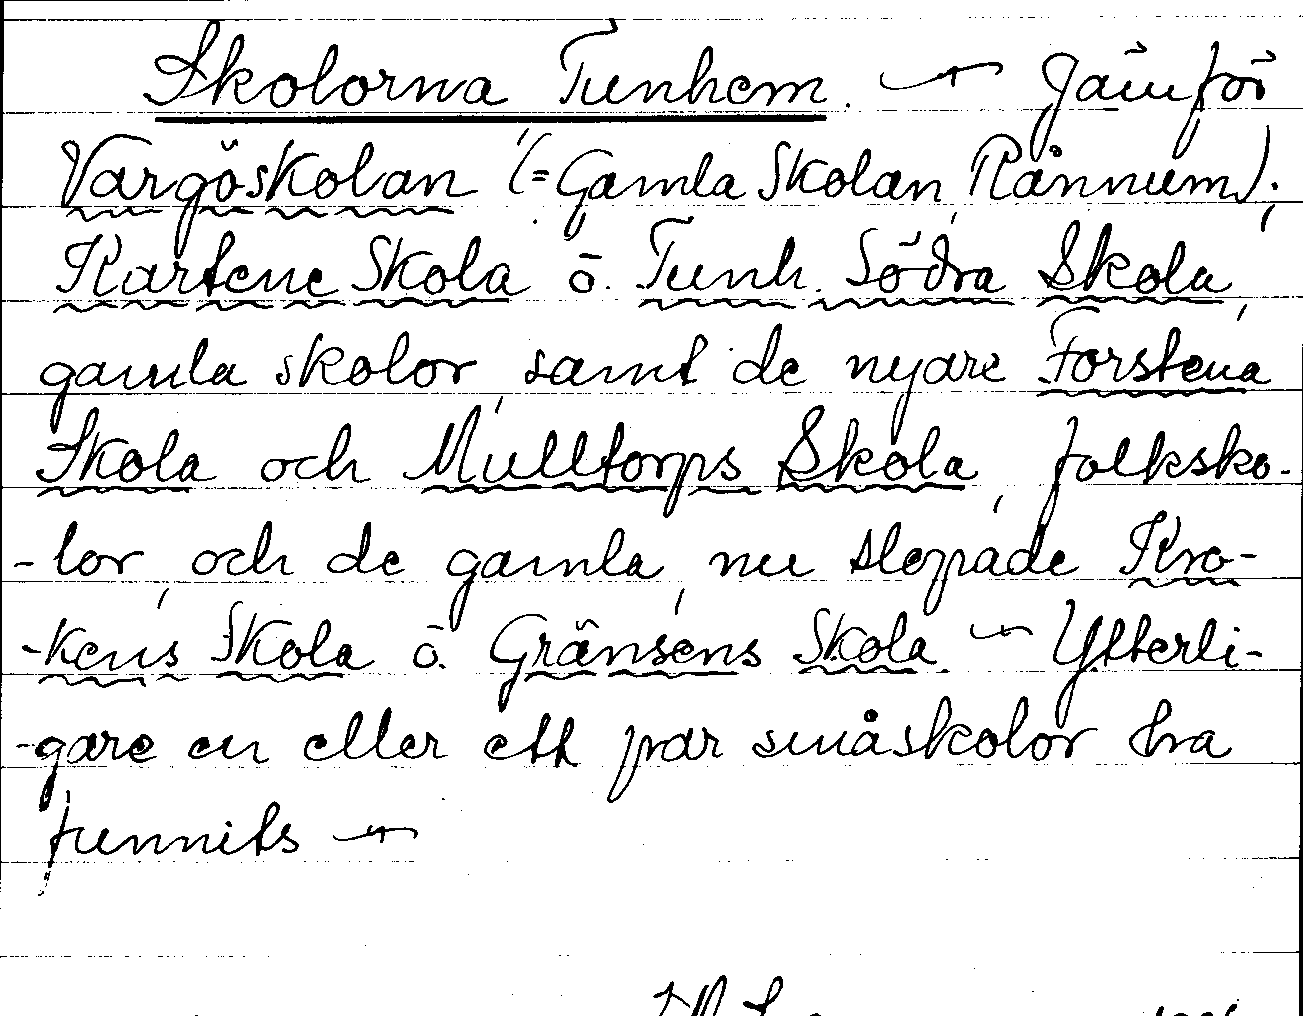 Skolorna Tunhem. — Jämför
Vargöskolan (= Gamla Skolan, Rånnum);
Kartene Skola o. Tunh. Södra Skola,
gamla skolor, samt de nyare Forstena
Skola och Mulltorps Skola, folksko-
-lor, och de gamla, nu slopade Kro-
-kens Skola o. Gränsens Skola. — Ytterli-
-gare en eller ett par småskolor ha
funnits —